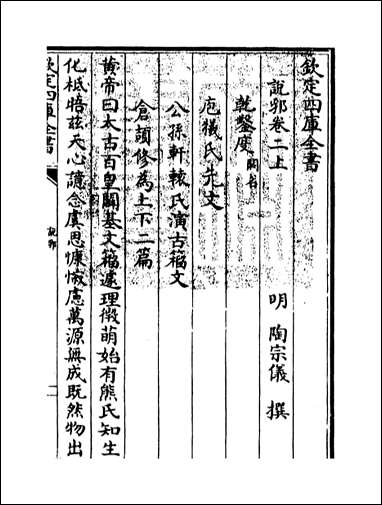 欽定四庫全書
說郛卷二上
明 陶宗儀 撰
乾鑿度
庖犧氏先文
公孫軒轅氏演古籀文
倉頡修為上下二篇
黃帝曰太古百皇闢基文籀遽理微萌始有熊氏知生
化柢晤茲天心譩念虞思慷慨慮萬源無成既然物出
欽定四庫全書
說郛